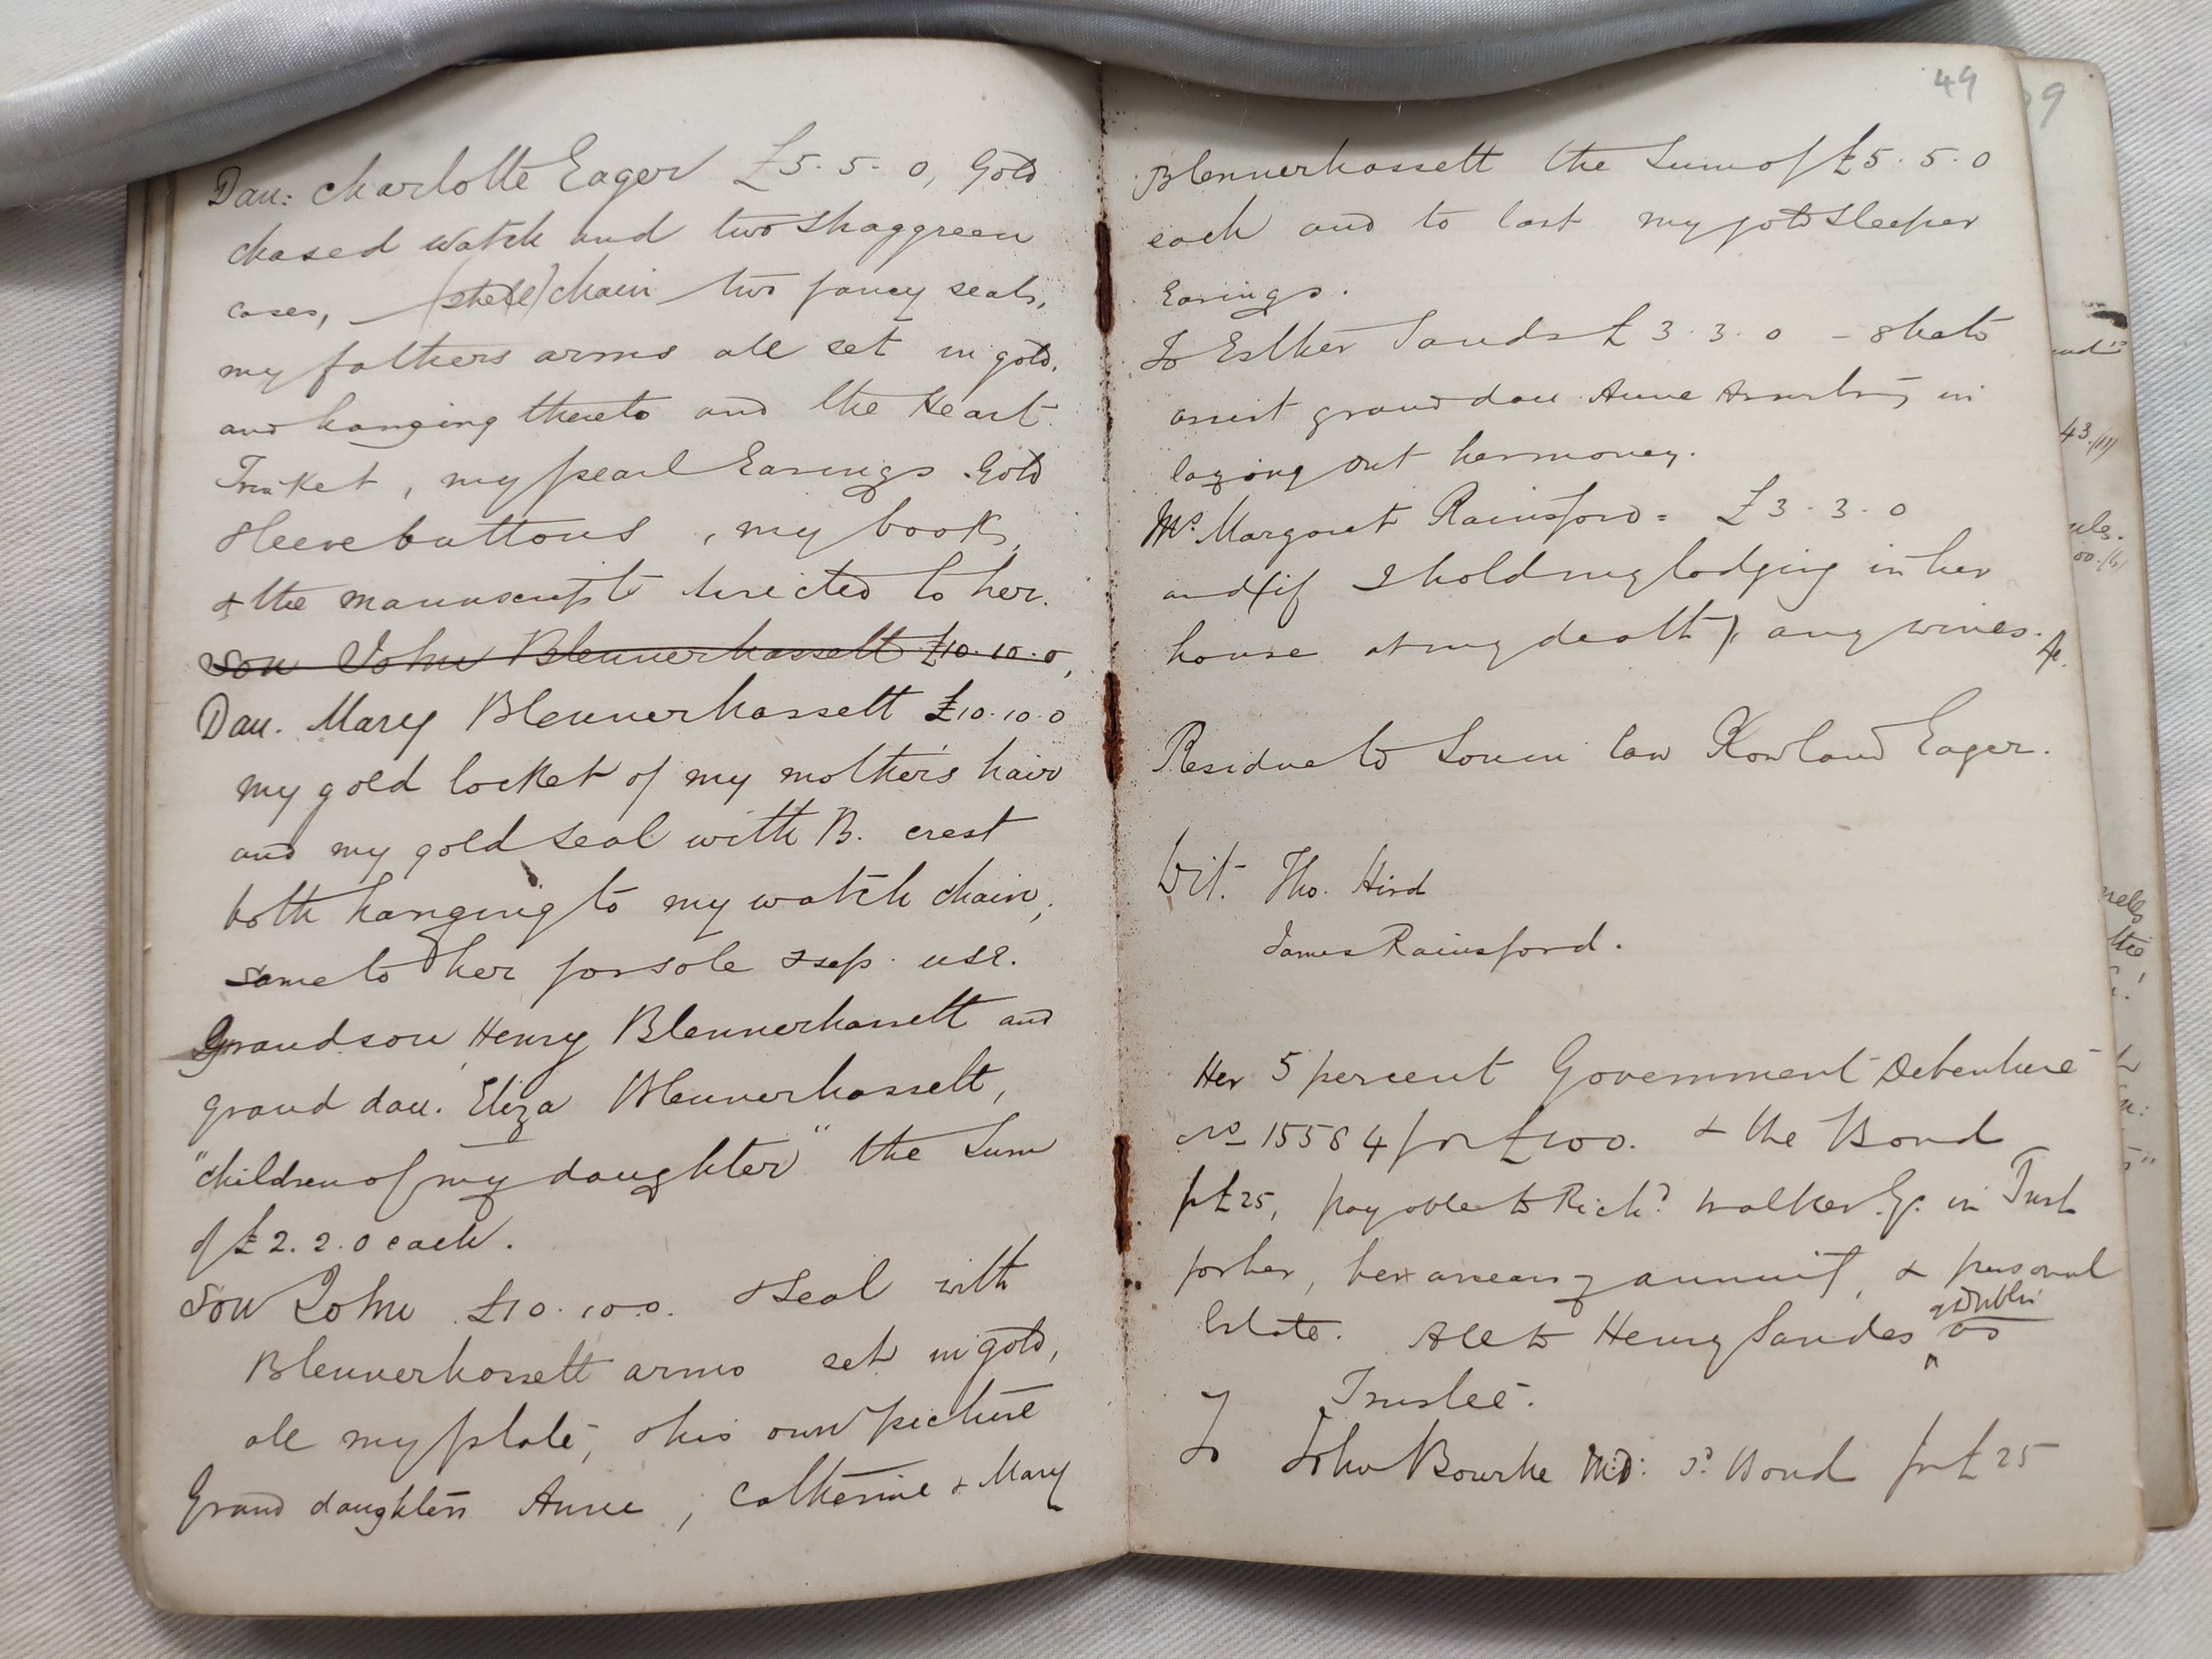 Dau: Charlotte Eager £5.5.0, Gold
chased watch and two Shaggreen
cases, (steel) chain two fancy seals,
my fathers arms all set in gold,
and hanging thereto and the Heart
Trinket, my pearl Earings Gold
sleeve buttons, my books,
& the manuscripts directed to her.
Son John Blennerhassett £10.10.0,
Dau. Mary Blennerhassett £10.10.0
my gold locket of my mother's hair
and my gold seal with B. crest
both hanging to my watch chain,
same to her for sole & sep. use.
Grandson Henry Blennerhassett and
grand dau. Eliza Blennerhassett,
"children of my daughter" the sum
of £2.2.0 each.
Son John £10.10.0. & Seal with
Blennerhassett arms set in gold,
all my plate, & his own picture
Grand daughters Anne, Catherine & Mary
49
Blennerhassett the Sum of £5.5.0
each and to last my gold sleeper
Earings.
To Esther Sands £3.3.0 - & she to
assist grand dau Anne in
laying out her money.
Mrs. Margaret Rainsford = £3.3.0
and (if I hold my lodging in her
house at my death), any wines. &c.
Residue to Son in law Rowland Eager.
Wit. Tho. Hird
James Rainsford.
Her 5 percent Government Debenture
No 15584 for £100. & the Bond
for £25, payable to Richd. Walker. in Trust
for her, her arrears of annuity, & personal
Estate. All to Henry Sandes of Dublin as
Trustee.
To John Bourke M.D: sd. Bond for £25